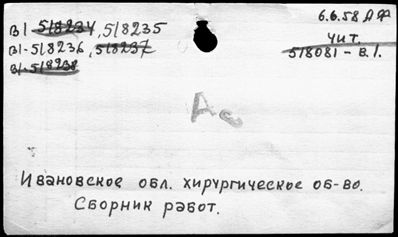 В1-518234, 518235
В1-518236, 518237
В1-518238
6.6.58 АФ
Чит.
518081-В.1.
Ас
Ивановское обл. хирургическое об-во.
Сборник работ.